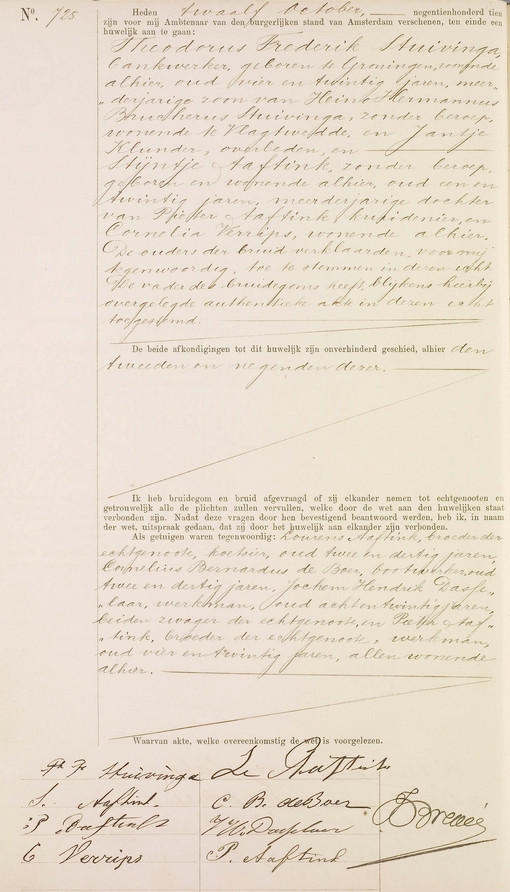 No. 725
Heden twaalf October, negentienhonderd tien
zijn voor mij Ambtenaar van den burgerlijken stand van Amsterdam verschenen, ten einde een
huwelijk aan te gaan:
Theodorus Frederik Stuivinga,
bankwerker, geboren te Groningen, wonende
alhier, oud vier en twintig jaren, meer-
derjarige zoon van Heino Hermannus
Bruchherus Stuivinga, zonder beroep,
wonende te Vlagtwedde, en Jantje
Klunder, overleden, en
Stijntje Aaftink, zonder beroep,
geboren en wonende alhier, oud een en
twintig jaren, meerderjarige dochter
van Pieter Aaftink, kruidenier, en
Cornelia Verrips, wonende alhier.
De ouders der bruid verklaarden, voor mij
tegenwoordig, toe te stemmen in deren echt
De vader des bruidegoms heeft, blijkens hierbij
overgelegde authentieke akte in dezen echt
toegestemd.
De beide afkondigingen tot dit huwelijk zijn onverhinderd geschied, alhier den
tweeden en negenden dezer.
Ik heb bruidegom en bruid afgevraagd of zij elkander nemen tot echtgenooten en
getrouwelijk alle de plichten zullen vervullen, welke door de wet aan den huwelijken staat
verbonden zijn. Nadat deze vragen door hen bevestigend beantwoord werden, heb ik, in naam
der wet, uitspraak gedaan, dat zij door het huwelijk aan elkander zijn verbonden.
Als getuigen waren tegenwoordig: Lourens Aaftink, broeder der
echtgenoote, koetsier, oud twee en dertig jaren,
Cornelius Bernardus de Boer, bootwerker, oud
twee en dertig jaren, Jochem Hendrik Dasse-
laar, werkman, oud acht en twintig jaren,
beiden zwager der echtgenoote, en Pieter Aaf-
tink, broeder der echtgenoote, werkman,
oud vier en twintig jaren, allen wonende
alhier.
Waarvan akte, welke overeenkomstig de wet is voorgelezen.
Th F Stuivinga L Aaftink
S. Aaftink C. B. de Boer
P. Aaftink J. H. Dasselaar
C Verrips P. Aaftink